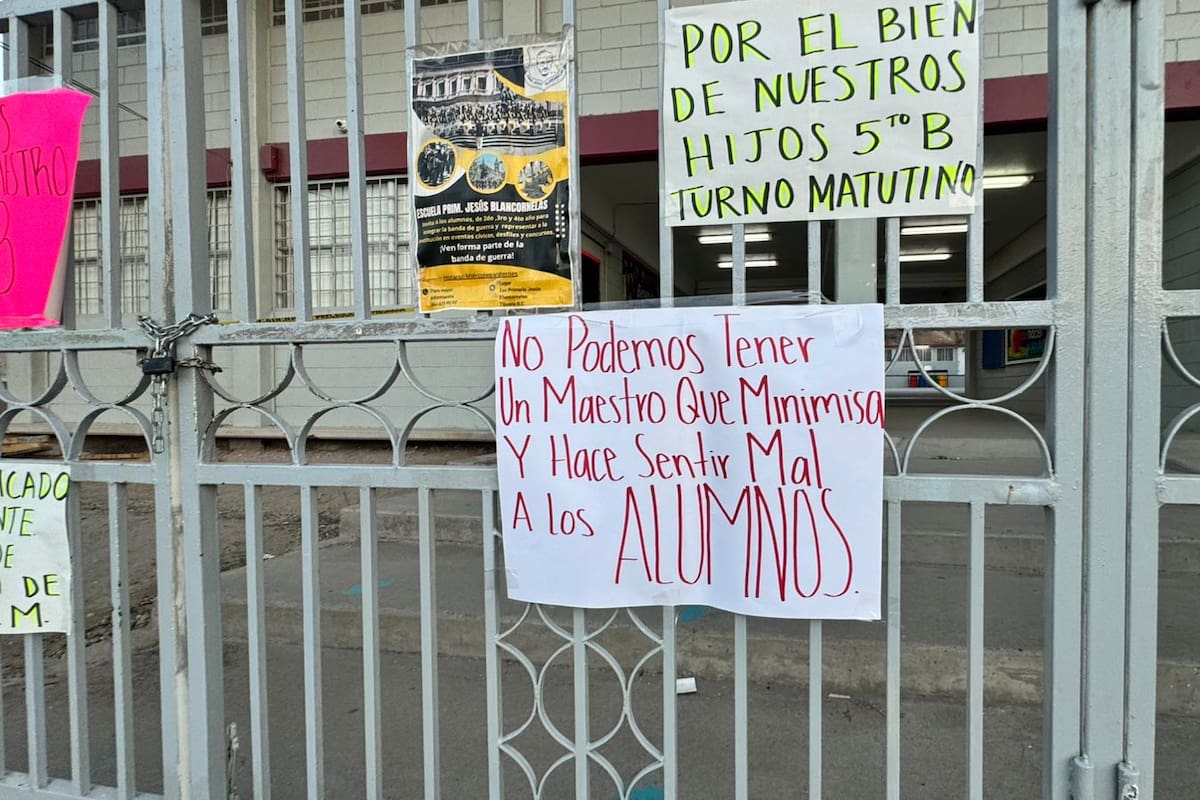 POR EL BIEN
DE NUESTROS
HIJOS 5TO B
TURNO MATUTINO
No Podemos Tener
Un Maestro Que Minimisa
Y Hace Sentir Mal
A los ALUMNOS.
ESCUELA PRIM. JESÚS BLANCORNELAS
Invita a los alumnos, de 2do ,3ro y 4to año para
integrar la banda de guerra y representar a la
institución en eventos cívicos, desfiles y concursos.
¡Ven forma parte de la
banda de guerra!
Horario: Miércoles y viernes
Para mayor
información
Lugar
Esc Primaria Jesús
Blancornelas
Tijuana B.C
S
STRO
B
ICADO
NTE
DE
O DE
M.